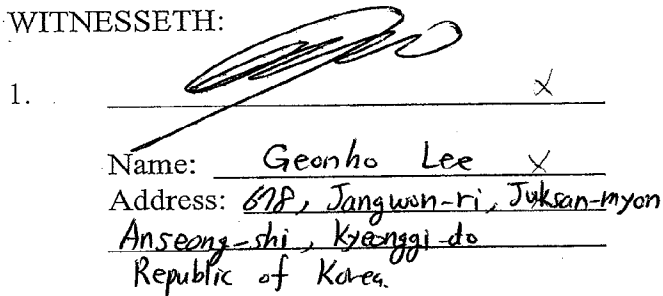 WITNESSETH:
1. X
Name: Geonho Lee X
Address: 678, Jangwon-ri, Juksan-myon
Anseong-shi, Kyeonggi-do
Republic of Korea.